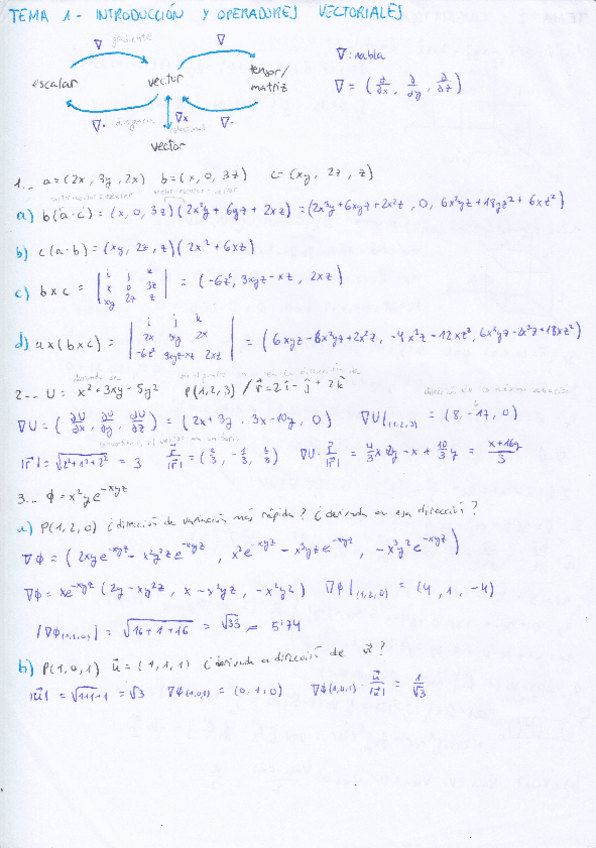 TEMA 1 - INTRODUCCIÓN Y OPERADORES VECTORIALES
∇ gradiente ∇
escalar vector tensor/matriz
∇· divergencia ∇x rotacional ∇·
vector
∇: nabla
∇ = (∂/∂x, ∂/∂y, ∂/∂z)
1.- a=(2x, 3y, 2x) b=(x, 0, 3z) c=(xy, 2z, z)
a) b(a·c) = (x, 0, 3z)(2x²y + 6yz + 2xz) = (2x³y+6xyz+2x²z, 0, 6x²yz+18yz²+6xz²)
b) c(a·b) = (xy, 2z, z)(2x²+6xz)
c) b x c = | i j k | x 0 3z | xy 2z z | = (-6z², 3xyz-xz, 2xz)
d) a x (b x c) = | i j k | 2x 3y 2x | -6z² 3xyz-xz 2xz | = (6xyz-6x²yz+2x²z, -4x²z-12xz², 6x²yz-2x²z+18xz²)
2.- U = x²+3xy-5y² P(1,2,3) / r=2i-j+2k
∇U = (∂U/∂x, ∂U/∂y, ∂U/∂z) = (2x+3y, 3x-10y, 0) ∇U|(1,2,3) = (8, -17, 0)
|r| = √(2²+1²+2²) = 3 r/|r| = (2/3, -1/3, 2/3) ∇U· r/|r| = 4/3x+2y-x+10/3y = (x+16y)/3
3.- ϕ=x²ye^-xyz
a) P(1,2,0) ¿dirección de variación más rápida? ¿derivada en esa dirección?
∇ϕ = (2xye^-xyz - x²y²ze^-xyz, x²e^-xyz - x³yze^-xyz, -x³y²e^-xyz)
∇ϕ = xe^-xyz (2y-xy²z, x-x²yz, -x²y²) ∇ϕ|(1,2,0) = (4, 1, -4)
|∇ϕ(1,2,0)| = √(16+1+16) = √33 = 5'74
b) P(1,0,1) u=(1,1,1) ¿derivada en dirección de u?
|u| = √(1+1+1) = √3 ∇ϕ(1,0,1) = (0,1,0) ∇ϕ(1,0,1)· u/|u| = 1/√3